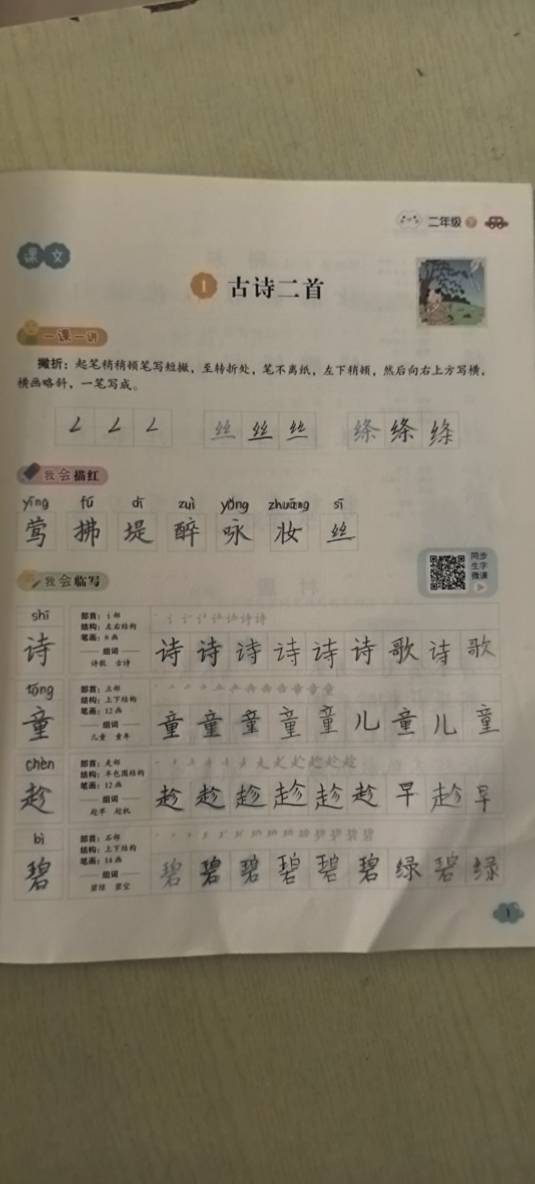 二年级 下
课文
1 古诗二首
一课一讲
撇折：起笔稍稍顿笔写短撇，至转折处，笔不离纸，左下稍顿，然后向右上方写横，
横画略斜，一笔写成。
丝 丝 丝 绦 绦 绦
我会描红
yīng fú dī zuì yǒng zhuāng sī
莺 拂 堤 醉 咏 妆 丝
同步
生字
微课
我会临写
shī
诗
部首：讠部
结构：左右结构
笔画：8画
组词
诗歌 古诗
诗 诗 诗 诗 诗 诗 歌 诗 歌
tóng
童
部首：立部
结构：上下结构
笔画：12画
组词
儿童 童年
童 童 童 童 童 儿 童 儿 童
chèn
趁
部首：走部
结构：半包围结构
笔画：12画
组词
趁早 趁机
趁 趁 趁 趁 趁 趁 早 趁 早
bì
碧
部首：石部
结构：上下结构
笔画：14画
组词
碧绿 碧空
碧 碧 碧 碧 碧 碧 绿 碧 绿
1